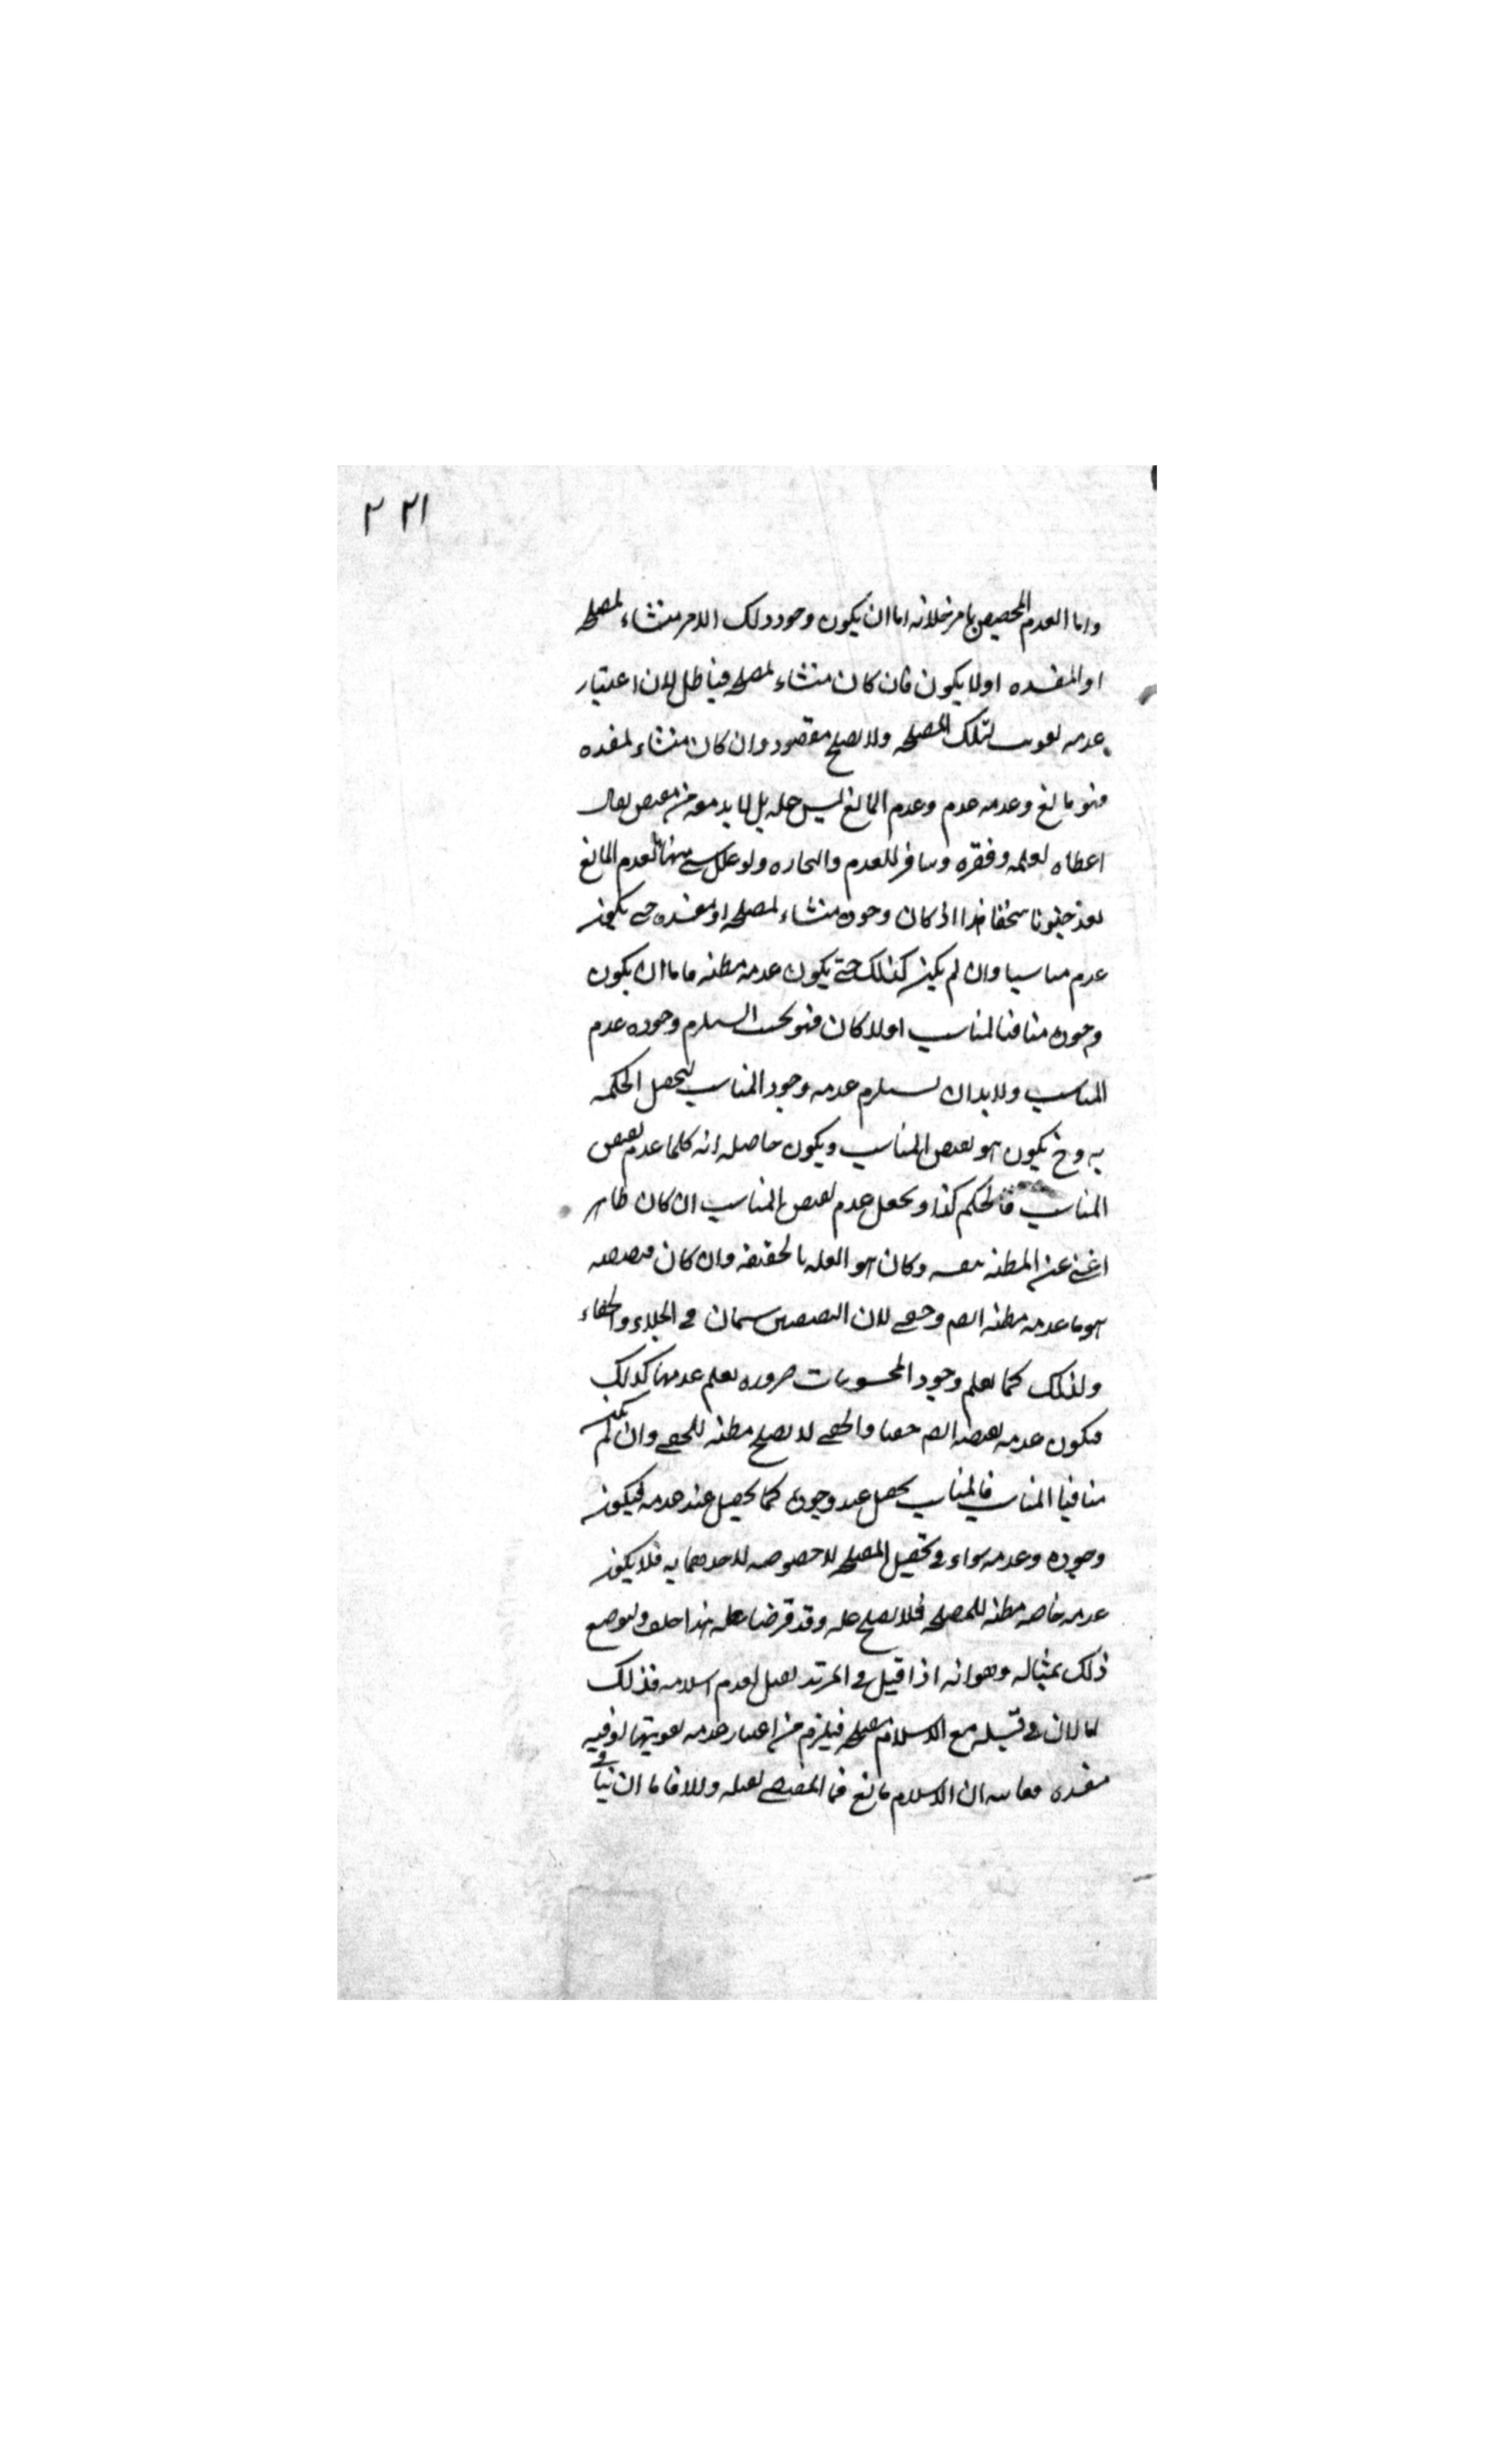 ٢٢١
واما العدم المخصص بامر فلانه اما ان يكون وجود ذلك الامر منشاء لمصلحه
او لمفسده اولا يكون فان كان منشاء لمصلحه فباطل لان اعتبار
عدمه تفويت لتلك المصلحه ولا يصلح مقصودا وان كان منشاء لمفسده
فهو مانع وعدمه عدم وعدم المانع ليس عله بل لا بد معه من مقتض يقال
اعطاه لعلمه وفقره وسافر للعلم والتجاره ولو علل شي منها بعدم المانع
لعد جنونا سخفا هذا اذا كان وجوده منشاء لمصلحه او مفسده حتى يكون
عدم مناسبا وان لم يكن كذلك حتى يكون عدمه مظنه فاما ان يكون
وجوده منافيا لمناسب اولا كان فهو بحيث يستلزم وجوده عدم
المناسب ولابد ان يستلزم عدمه وجود المناسب لتحصل الحكمه
به وح يكون هو نقيض المناسب ويكون حاصله انه كلما عدم نقيض
المناسب فالحكم كذا ويجعل عدم نقيض المناسب ان كان ظاهر
اغنى عن المظنه بنفسه وكان هو العله بالحقيقه وان كان فنقيضه
هو ما عدمه مظنه ايضا وخفى لان النقيضين سيان فى الجلاء والخفاء
ولذلك كما يعلم وجود المحسوسات ضروره يعلم عدمها كذلك
فيكون عدم نقيضه ايضا خفيا والخفى لا يصلح مظنه للخفى وان لم يكن
منافيا المناسب فالمناسب يحصل عند وجوده كما يحصل عند عدمه فيكون
وجوده وعدمه سواء فى تحصيل المصلحه لا خصوصيه لاحدهما به فلا يكون
عدمه خاصه مظنه للمصلحه فلا يصلح عله وقد فرضناه عله هذا خلف ولنوضح
ذلك بمثاله وهو انه اذا قيل فى المرتد يقتل لعدم اسلامه فذلك
اما لان فى قتله مع الاسلام مصلحه فيلزم من اعتبار عدمه تفويتها او فيه
مفسده فغايته ان الاسلام مانع فما المقتضى لقتله واما لانه ينافى